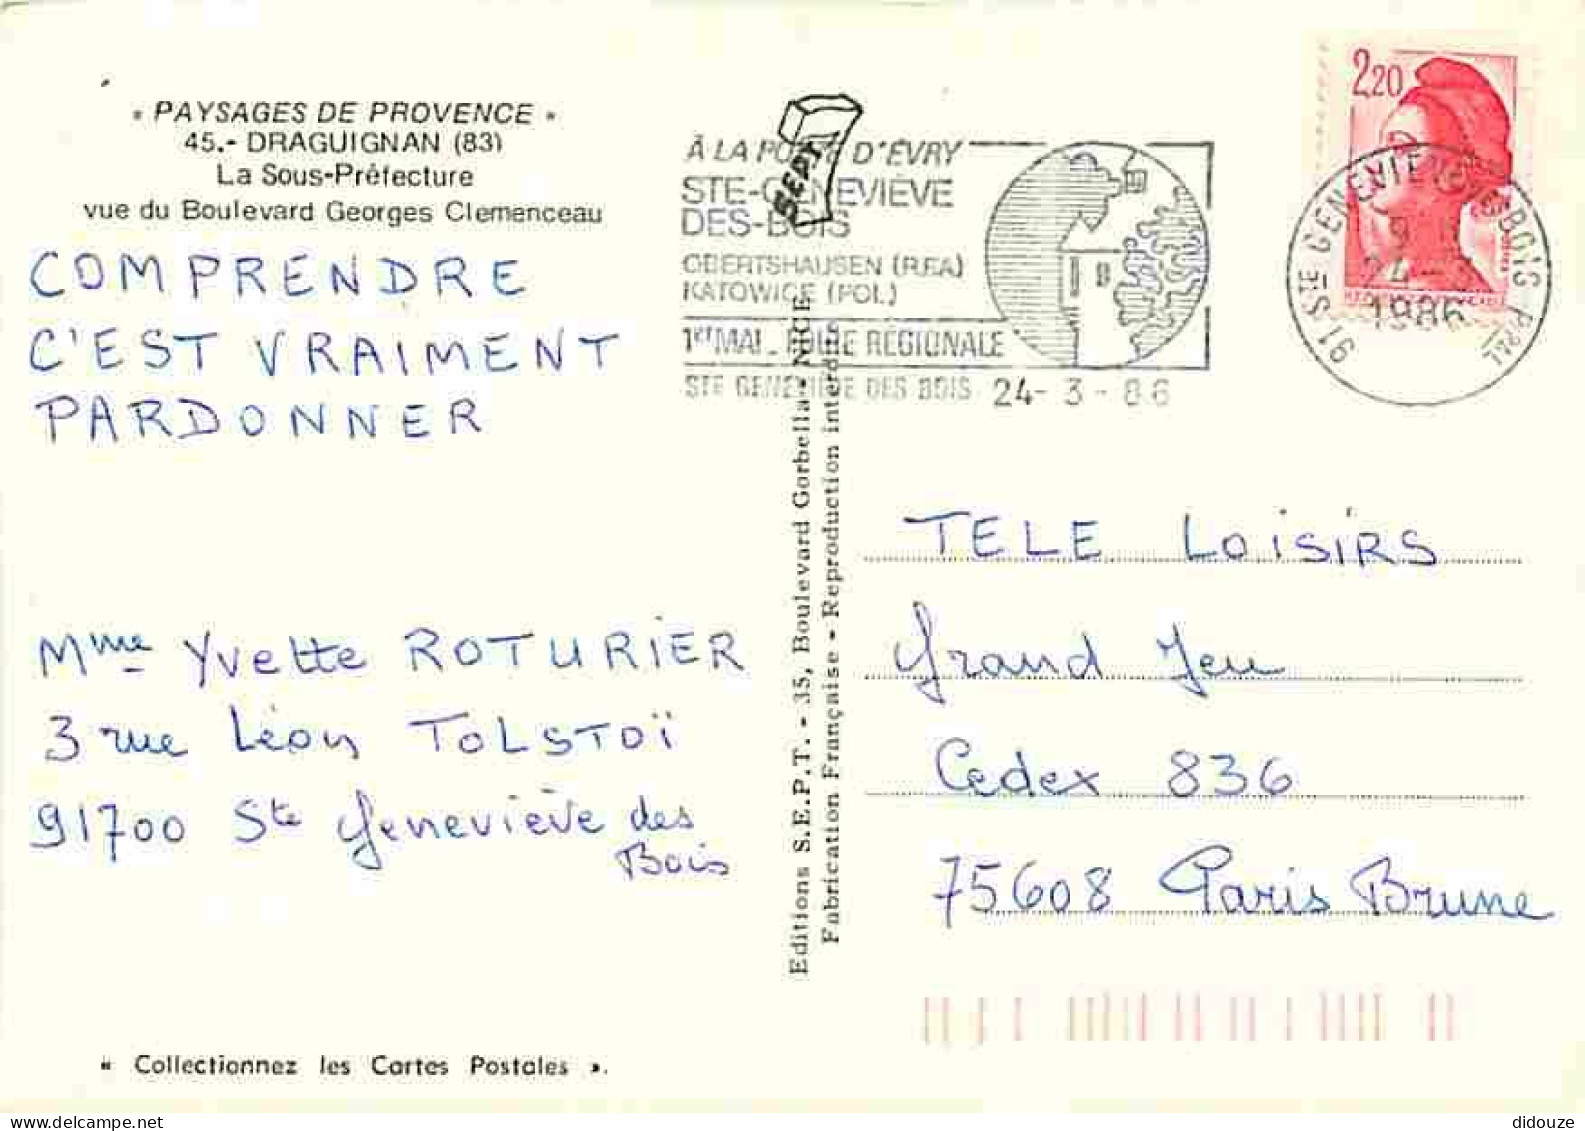 « PAYSAGES DE PROVENCE »
45.- DRAGUIGNAN (83)
La Sous-Préfecture
vue du Boulevard Georges Clemenceau
COMPRENDRE
C'EST VRAIMENT
PARDONNER
Mme Yvette ROTURIER
3 rue Léon TOLSTOÏ
91700 Ste Geneviève des
Bois
« Collectionnez les Cartes Postales ».
SEPT
À LA PORTE D'ÉVRY
STE-GENEVIÈVE
DES-BOIS
OBERTSHAUSEN (RFA)
KATOWICE (POL)
1er MAI FOIRE RÉGIONALE
STE GENEVIEVE DES BOIS 24-3-86
2,20
91 STE GENEVIEVE BOIS PPAL
24-3
1986
Editions S.E.P.T. - 35, Boulevard Gorbella - NICE
Fabrication Française - Reproduction interdite
TELE LOISIRS
Grand Jeu
Cedex 836
75608 Paris Brune
didouze